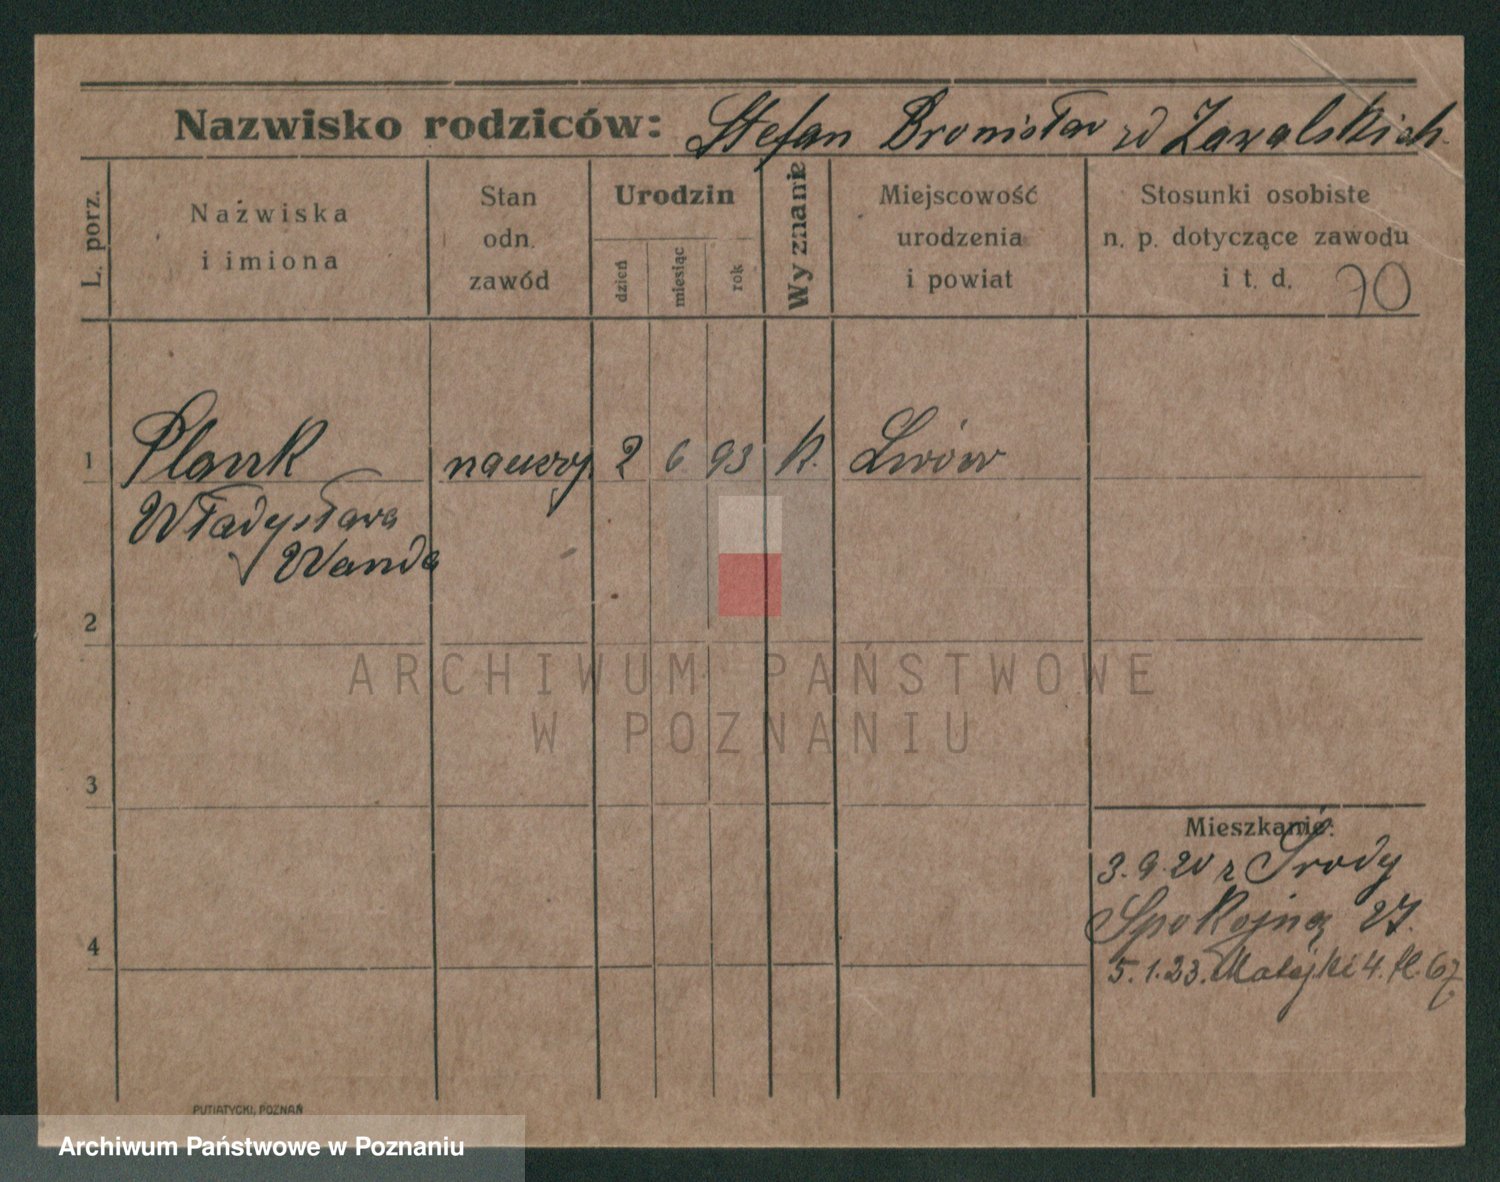 Nazwisko rodziców: Stefan Bronisław zd Zawalskich
L. porz.
Nazwiska
i imiona
Stan
odn.
zawód
Urodzin
dzień
miesiąc
rok
Wyznanie
Miejscowość
urodzenia
i powiat
Stosunki osobiste
n. p. dotyczące zawodu
i t. d.
70
1 Plank nauczy. 2 6 93 k. Lwów
Władysława
Wanda
2
3
4
Mieszkanie:
3.9.20 z Środy
Spokojna 27.
5.1.23. Matejki 4. H. 67
PUTIATYCKI, POZNAŃ
ARCHIWUM PAŃSTWOWE
W POZNANIU
Archiwum Państwowe w Poznaniu